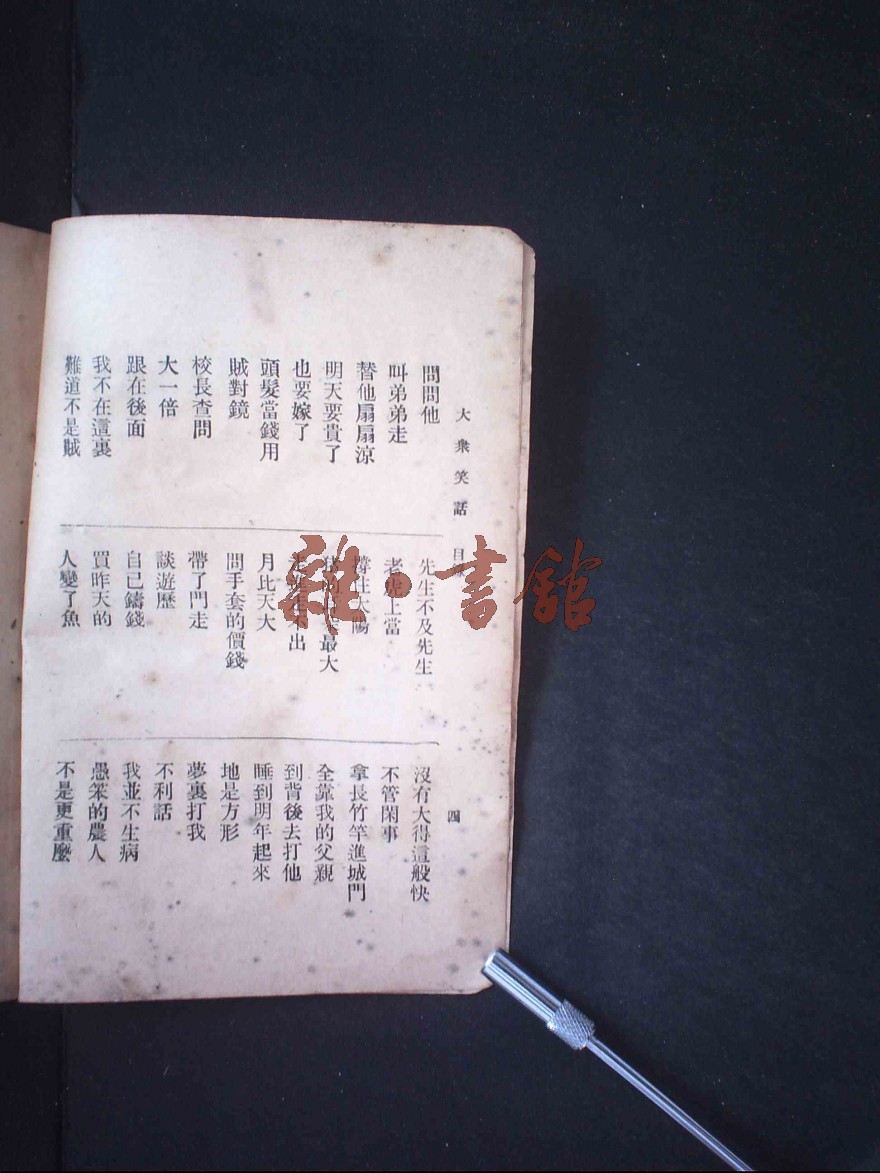 大衆笑話 目
四
問問他
叫弟弟走
替他扇扇涼
明天要貴了
也要嫁了
頭髮當錢用
賊對鏡
校長查問
大一倍
跟在後面
我不在這裏
難道不是賊
先生不及先生
老虎上當
撐住太陽
最大
出
月比天大
問手套的價錢
帶了門走
談遊歷
自己鑄錢
買昨天的
人變了魚
沒有大得這般快
不管閑事
拿長竹竿進城門
全靠我的父親
到背後去打他
睡到明年起來
地是方形
夢裏打我
不利話
我並不生病
愚笨的農人
不是更重麼
雜·書館